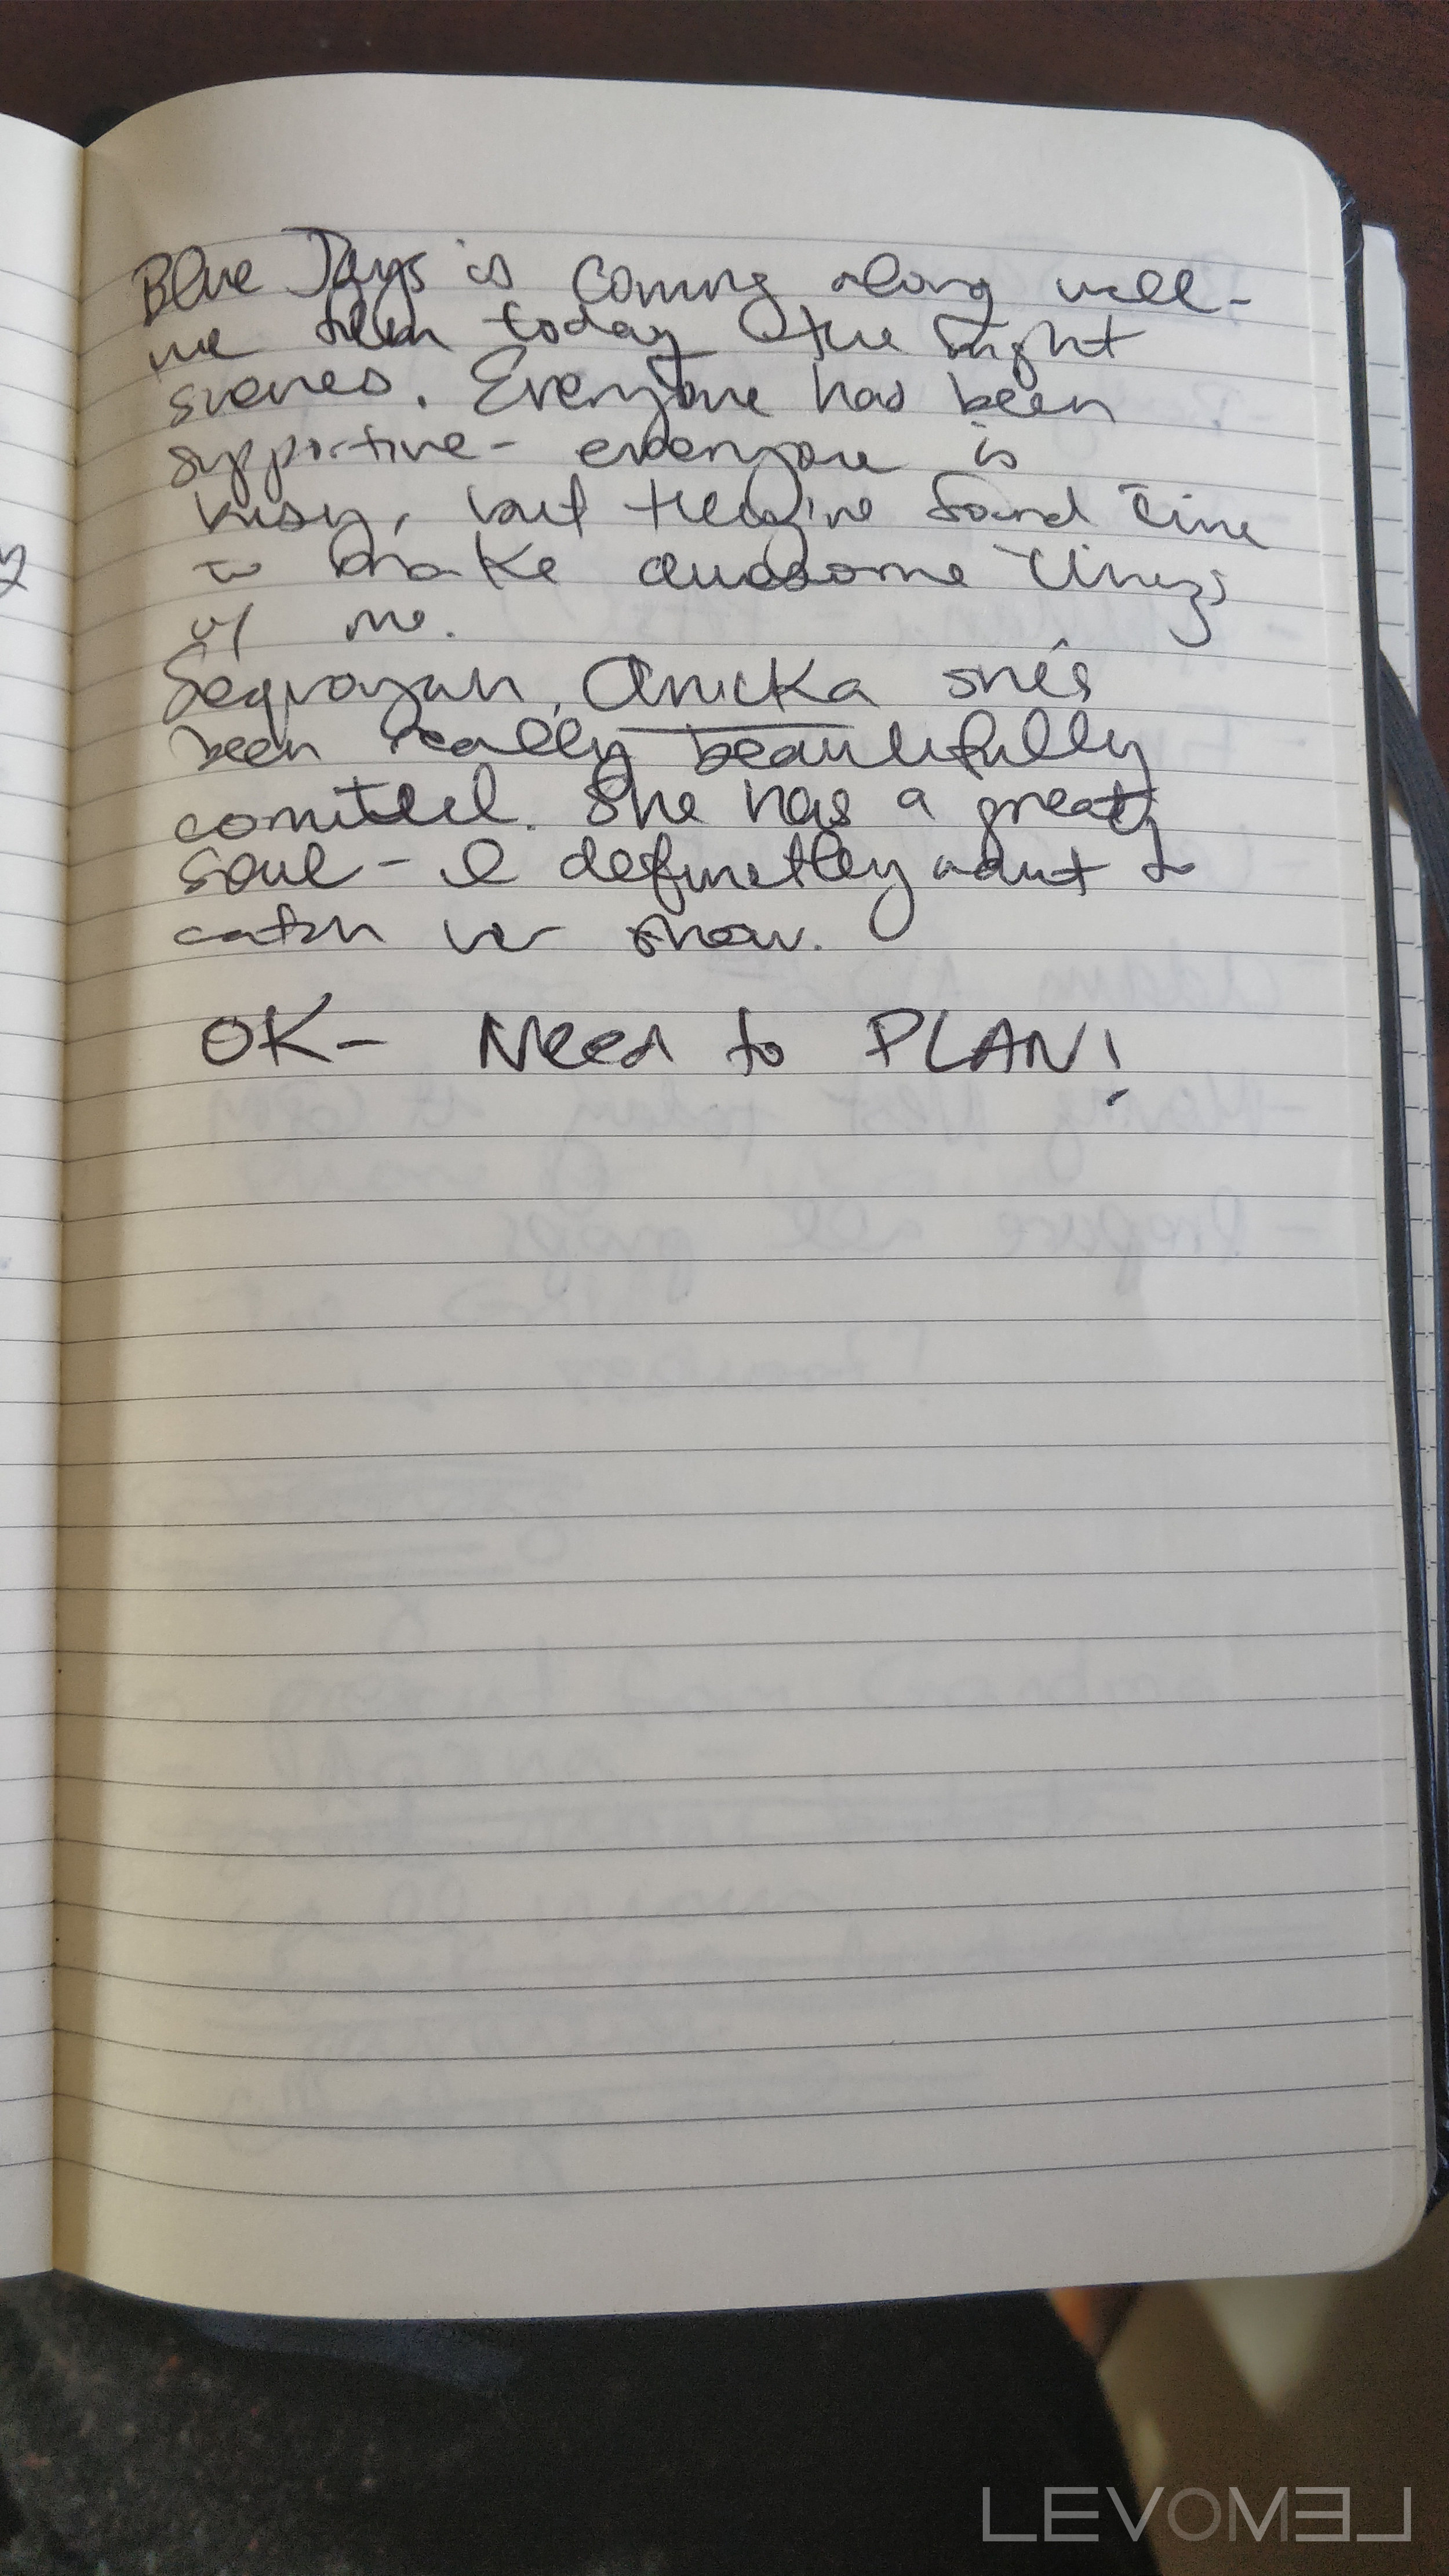 Blue Jays is coming along well-
we film today the fight
scenes. Everyone has been
supportive- everyone is
busy, but they've found time
to make awesome things
w/ me.
Sequoyah, Anicka she's
been really beautifully
comitted. She has a great
soul - I definetley want to
catch her show.
OK- Need to PLAN!
LEVOMEL